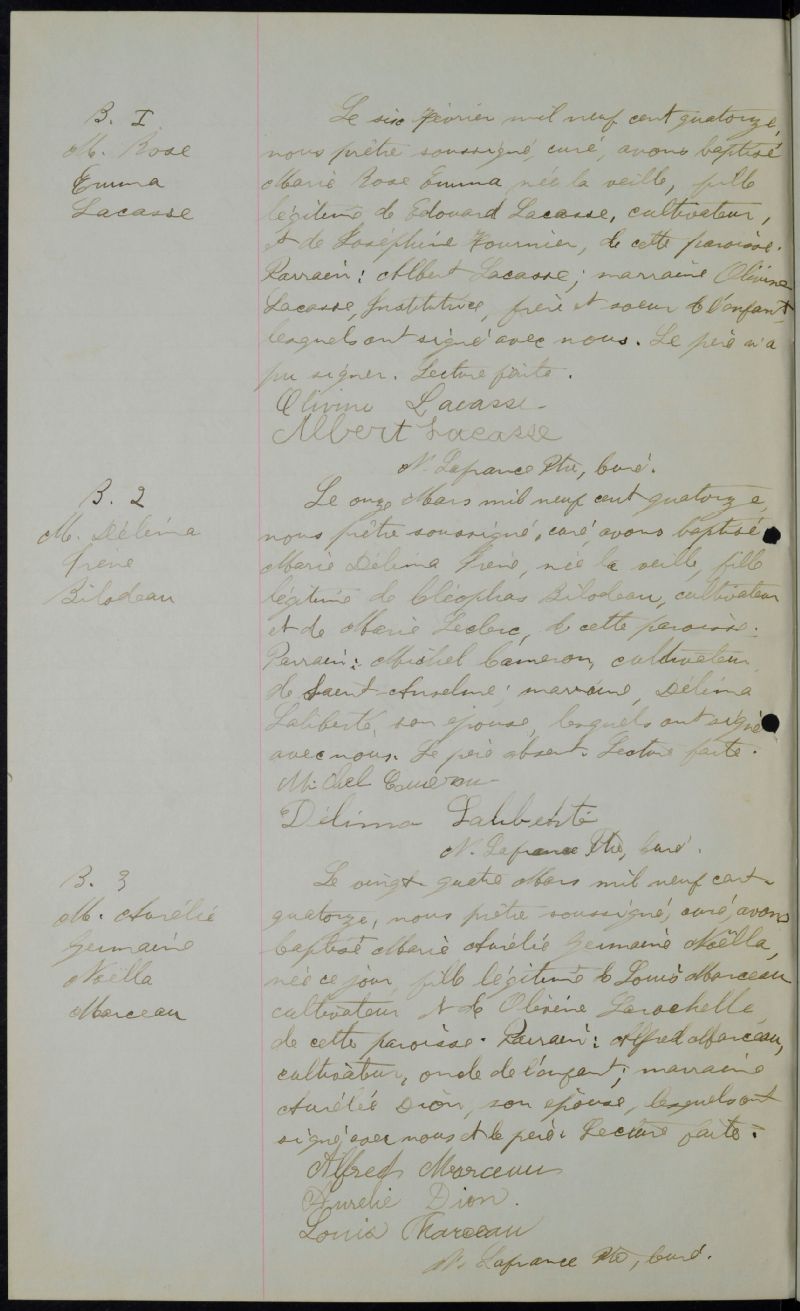 B. I
M. Rose
Emma
Lacasse
Le six Février mil neuf cent quatorze,
nous prêtre soussigné, curé, avons baptisé
Marie Rose Emma, née la veille, fille
légitime de Edouard Lacasse, cultivateur,
et de Joséphine Fournier, de cette paroisse.
Parrain : Albert Lacasse ; marraine Olivine
Lacasse, Institutrice, frère et soeur de l'enfant,
lesquels ont signé avec nous. Le père n'a
pu signer. Lecture faite.
Olivine Lacasse
Albert Lacasse
N. Lafrance Ptre, Curé.
B. 2
M. Délima
Irène
Bilodeau
Le onze Mars mil neuf cent quatorze,
nous prêtre soussigné, curé, avons baptisé
Marie Délima Irène, née la veille, fille
légitime de Cléophas Bilodeau, cultivateur
et de Marie Leclerc, de cette paroisse.
Parrain : Michel Cameron, cultivateur
de Saint-Anselme ; marraine, Délima
Laliberté, son épouse, lesquels ont signé
avec nous. Le père absent. Lecture faite.
Michel Cameron
Délima Laliberté
N. Lafrance Ptre, Curé.
B. 3
M. Aurélie
Germaine
Noëlla
Marceau
Le vingt-quatre Mars mil neuf cent-
quatorze, nous prêtre soussigné, curé, avons
baptisé Marie Aurélie Germaine Noëlla,
née ce jour, fille légitime de Louis Marceau
cultivateur et de Olivine Larochelle,
de cette paroisse. Parrain : Alfred Marceau,
cultivateur, oncle de l'enfant ; marraine
Aurélie Dion, son épouse, lesquels ont
signé avec nous et le père. Lecture faite.
Alfred Marceau
Aurelie Dion.
Louis Marceau
N. Lafrance Ptre, Curé.